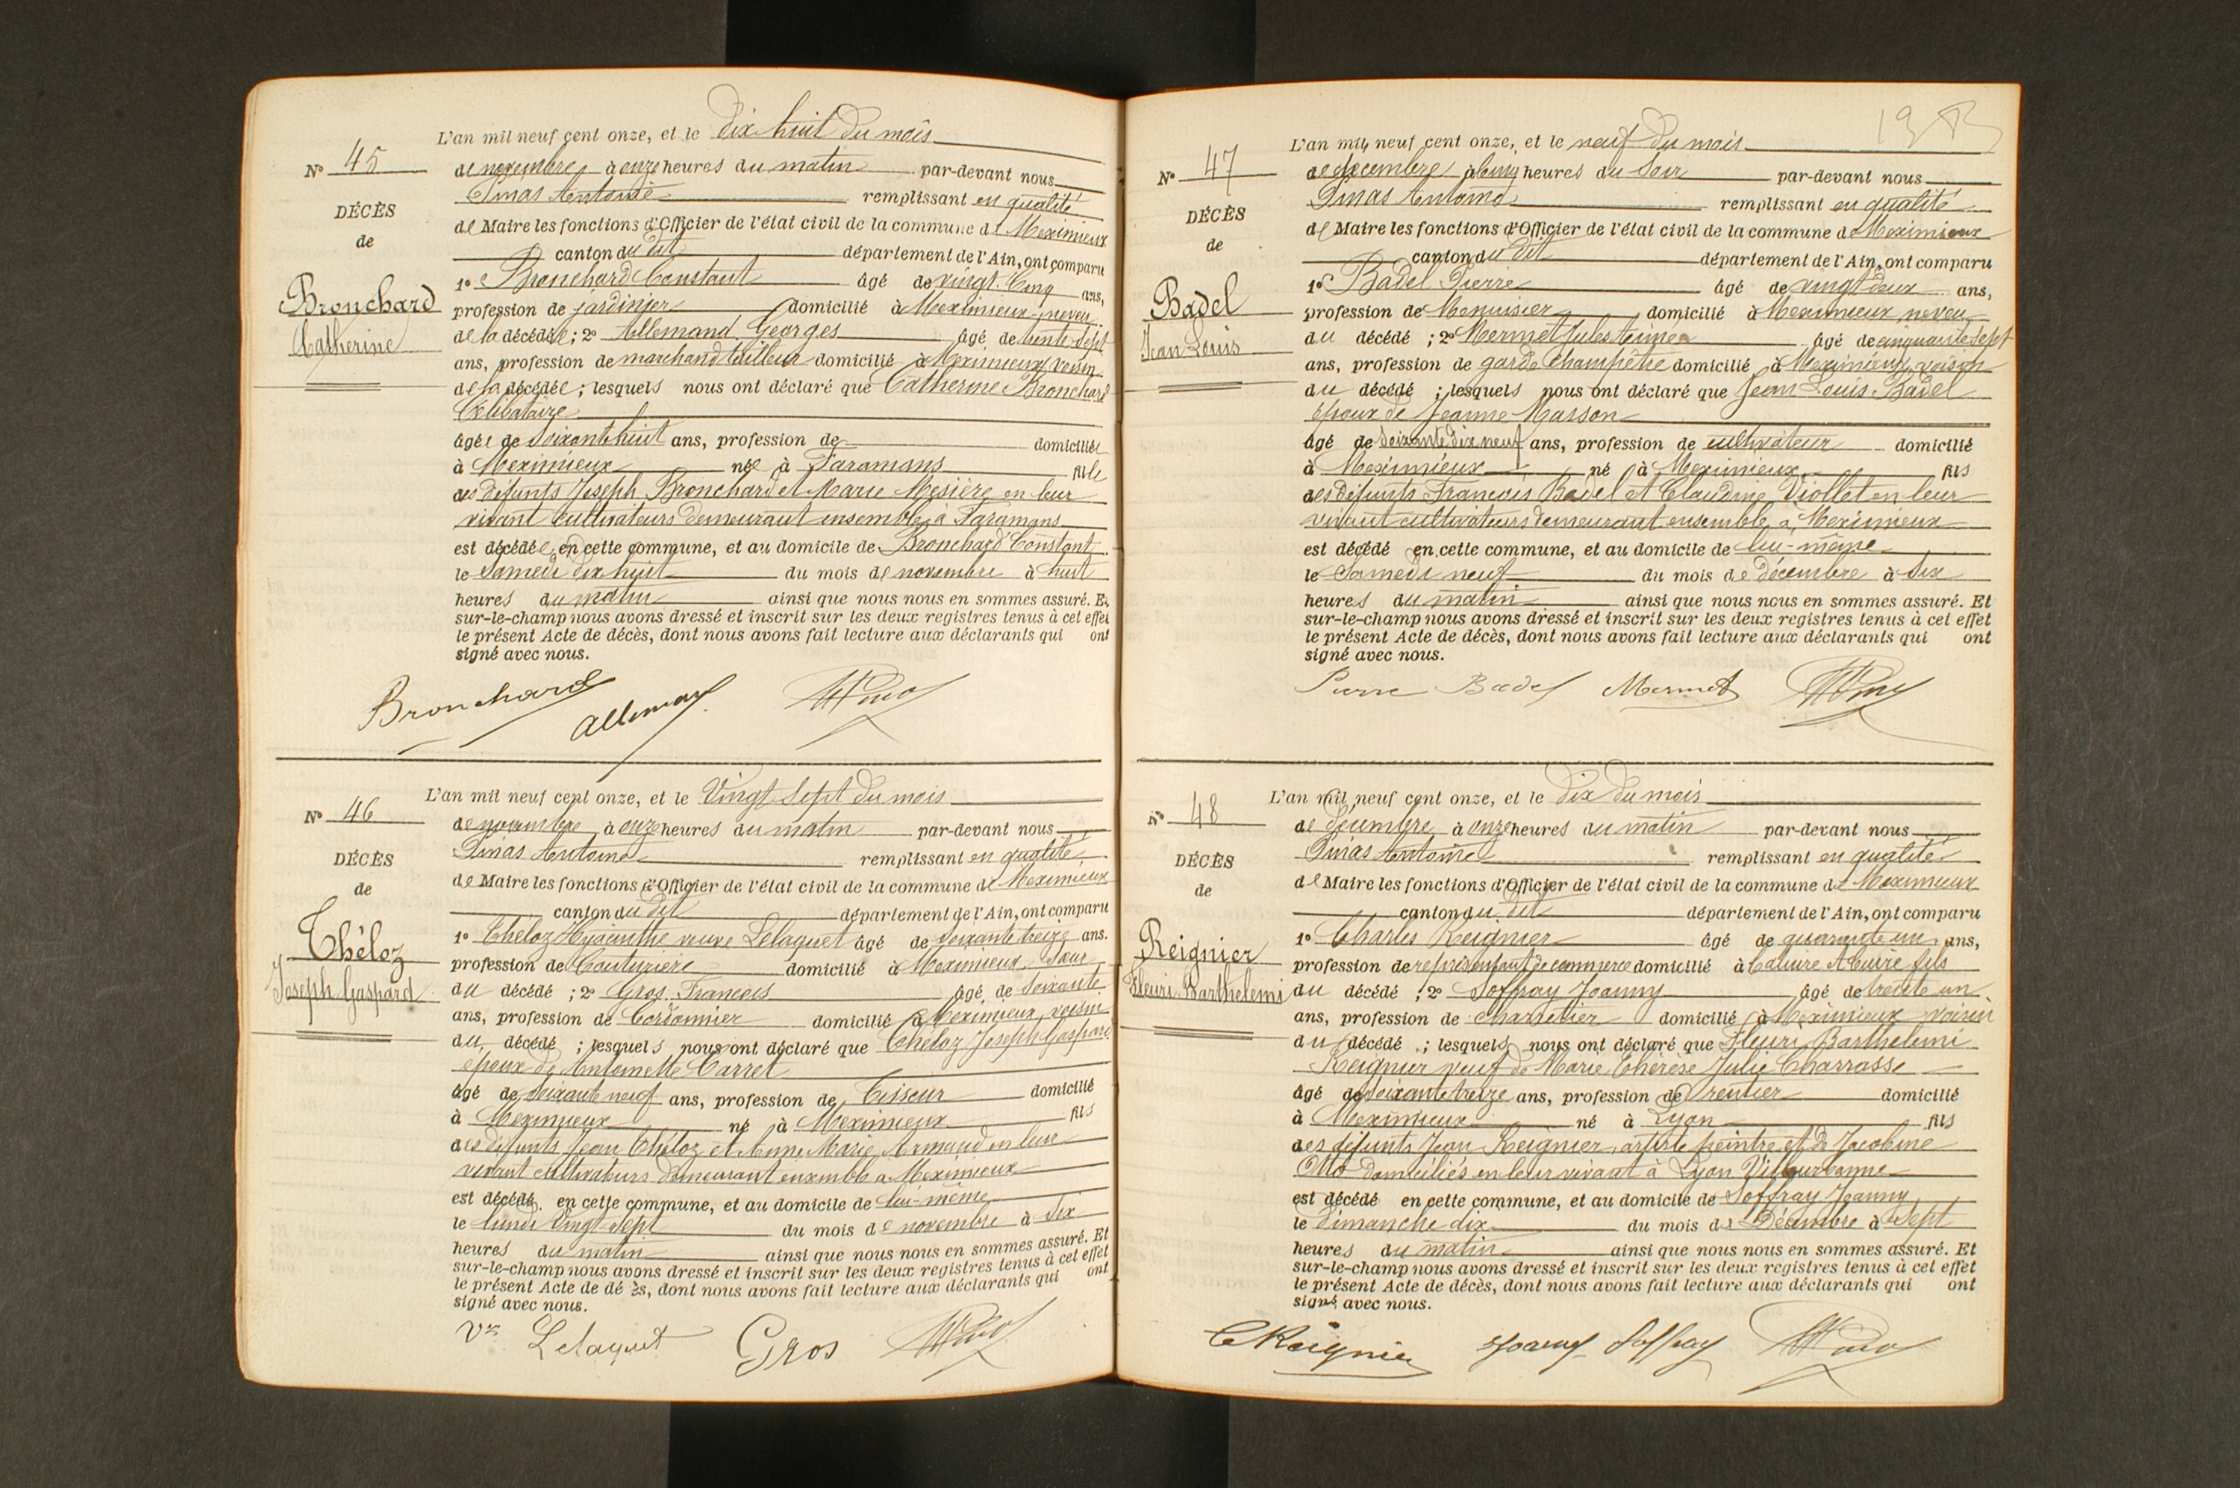 L'an mil neuf cent onze, et le dix huit du mois
N° 45
de novembre à onze heures du matin par-devant nous
Pinas Antoine remplissant en qualité
DÉCÈS
de Maire les fonctions d'Officier de l'état civil de la commune de Meximieux
de
canton du dit département de l'Ain, ont comparu
1° Bronchard Constant âgé de vingt-cinq ans,
Bronchard
profession de jardinier domicilié à Meximieux, neveu
Catherine
de la décédée; 2° Allemand Georges âgé de trente sept
ans, profession de marchand tailleur domicilié à Meximieux, voisin
de la décédée; lesquels nous ont déclaré que Catherine Bronchard
Célibataire
âgée de soixante huit ans, profession de domiciliée
à Meximieux née à Faramans fille
des défunts Joseph Bronchard et Marie Mesière en leur
vivant cultivateurs demeurant ensemble à Faramans
est décédée en cette commune, et au domicile de Bronchard Constant
le Samedi dix huit du mois de novembre à huit
heures du matin ainsi que nous nous en sommes assuré. Et
sur-le-champ nous avons dressé et inscrit sur les deux registres tenus à cet effet
le présent Acte de décès, dont nous avons fait lecture aux déclarants qui ont
signé avec nous.
Bronchard Allemand
L'an mil neuf cent onze, et le Vingt Sept du mois
N° 46
de novembre à onze heures du matin par-devant nous
Pinas Antoine remplissant en qualité
DÉCÈS
de Maire les fonctions d'Officier de l'état civil de la commune de Meximieux
de
canton du dit département de l'Ain, ont comparu
1° Théloz Hyacinthe veuve Lelaquet âgé de soixante treize ans.
Théloz
profession de Couturière domicilié à Meximieux, sœur
Joseph Gaspard
du décédé; 2° Gros François âgé de soixante
ans, profession de Cordonnier domicilié à Meximieux voisin
du décédé; lesquels nous ont déclaré que Théloz Joseph Gaspard
époux de Antoinette Carret
âgé de soixante neuf ans, profession de Tisseur domicilié
à Meximieux né à Meximieux fils
des défunts Jean Théloz et Anne Marie Armand en leur
vivant cultivateurs demeurant ensemble à Meximieux
est décédé en cette commune, et au domicile de lui-même
le lundi vingt-sept du mois de novembre à six
heures du matin ainsi que nous nous en sommes assuré. Et
sur-le-champ nous avons dressé et inscrit sur les deux registres tenus à cet effet
le présent Acte de décès, dont nous avons fait lecture aux déclarants qui ont
signé avec nous.
Vve Lelaquet Gros
19
L'an mil neuf cent onze, et le neuf du mois
N° 47
de décembre à cinq heures du soir par-devant nous
Pinas Antoine remplissant en qualité
DÉCÈS
de Maire les fonctions d'Officier de l'état civil de la commune de Meximieux
de
canton du dit département de l'Ain, ont comparu
1° Badel Pierre âgé de vingt deux ans,
Badel
profession de Menuisier domicilié à Meximieux, neveu
Jean Louis
du décédé; 2° Mermet Jules Aimé âgé de cinquante sept
ans, profession de garde champêtre domicilié à Meximieux, voisin
du décédé; lesquels nous ont déclaré que Jean Louis Badel
époux de Jeanne Masson
âgé de soixante dix neuf ans, profession de cultivateur domicilié
à Meximieux né à Meximieux fils
des défunts François Badel et Claudine Viollet en leur
vivant cultivateurs demeurant ensemble à Meximieux
est décédé en cette commune, et au domicile de lui-même
le Samedi neuf du mois de décembre à six
heures du matin ainsi que nous nous en sommes assuré. Et
sur-le-champ nous avons dressé et inscrit sur les deux registres tenus à cet effet
le présent Acte de décès, dont nous avons fait lecture aux déclarants qui ont
signé avec nous.
Pierre Badel Mermet
L'an mil neuf cent onze, et le dix du mois
N° 48
de Décembre à onze heures du matin par-devant nous
Pinas Antoine remplissant en qualité
DÉCÈS
de Maire les fonctions d'Officier de l'état civil de la commune de Meximieux
de
canton du dit département de l'Ain, ont comparu
1° Charles Reignier âgé de quarante un ans,
Reignier
profession de représentant de commerce domicilié à Caluire et Cuire fils
Fleuri Barthelemi
du décédé; 2° Soffray Joanny âgé de trente un
ans, profession de charretier domicilié à Meximieux voisin
du décédé; lesquels nous ont déclaré que Fleuri Barthelemi
Reignier veuf de Marie Thérèse Julie Charrasse
âgé de soixante treize ans, profession de rentier domicilié
à Meximieux né à Lyon fils
des défunts Jean Reignier, artiste peintre et de Jacobine
Otto domiciliés en leur vivant à Lyon Villeurbanne
est décédé en cette commune, et au domicile de Soffray Joanny
le Dimanche dix du mois de Décembre à sept
heures du matin ainsi que nous nous en sommes assuré. Et
sur-le-champ nous avons dressé et inscrit sur les deux registres tenus à cet effet
le présent Acte de décès, dont nous avons fait lecture aux déclarants qui ont
signé avec nous.
C Reignier Joanny Soffray